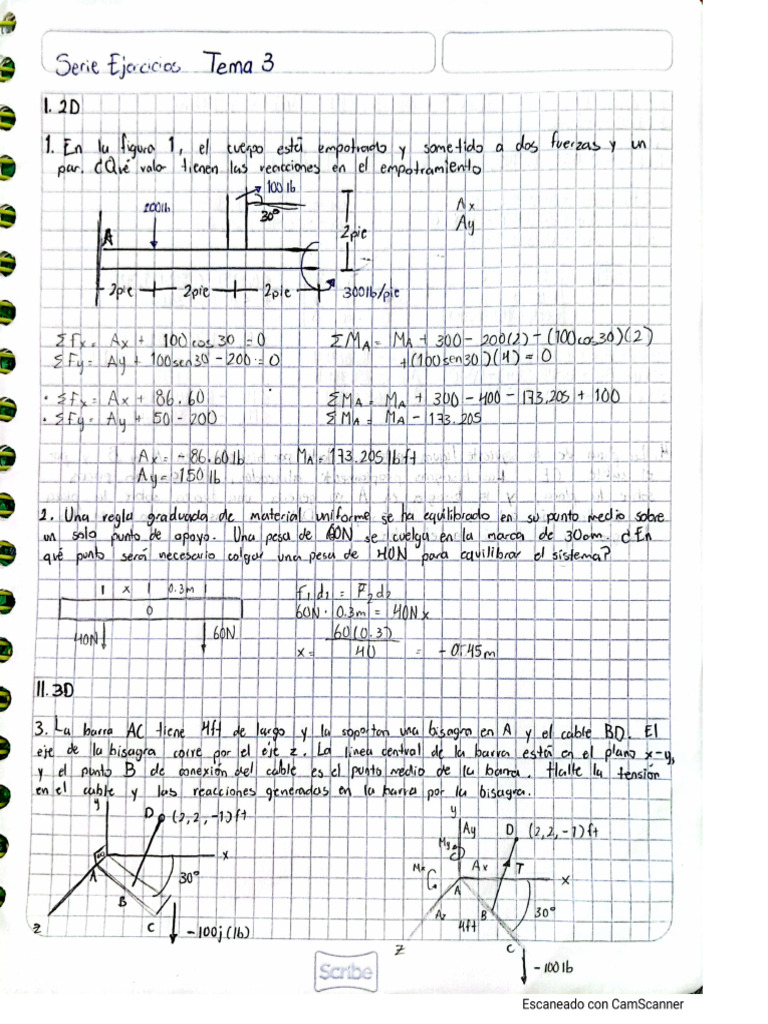 Serie Ejercicios Tema 3
I. 2D
1. En la figura 1, el cuerpo está empotrado y sometido a dos fuerzas y un
par. ¿Qué valor tienen las reacciones en el empotramiento
100 lb
200lb
30°
A
2pie
Ax
Ay
2pie 2pie 2pie 300lb/pie
Σfx = Ax + 100cos30 = 0
ΣMA = MA + 300 - 200(2) - (100cos30)(2)
Σfy = Ay + 100sen30 - 200 = 0
+ (100sen30)(4) = 0
• Σfx = Ax + 86.60
ΣMA = MA + 300 - 400 - 173.205 + 100
• Σfy = Ay + 50 - 200
ΣMA = MA - 173.205
Ax = - 86.60 lb
MA = 173.205 lb ft
Ay = 150 lb
2. Una regla graduada de material uniforme se ha equilibrado en su punto medio sobre
un solo punto de apoyo. Una pesa de 60N se cuelga en la marca de 30cm. ¿En
qué punto será necesario colgar una pesa de 40N para equilibrar el sistema?
x 0.3m
0
40N 60N
f1d1 = F2d2
60N · 0.3m = 40N x
x = 60(0.3) / 40 = - 0.45m
II. 3D
3. La barra AC tiene 4ft de largo y la soportan una bisagra en A y el cable BD. El
eje de la bisagra corre por el eje z. La línea central de la barra está en el plano x-y,
y el punto B de conexión del cable es el punto medio de la barra. Halle la tensión
en el cable y las reacciones generadas en la barra por la bisagra.
y D (2,2,-1) ft
x
A 30°
B
z C -100j (lb)
y
Ay D (2,2,-1) ft
My
Mx Ax T
A x
Az B 30°
4ft
z C
-100 lb
Scribe
Escaneado con CamScanner